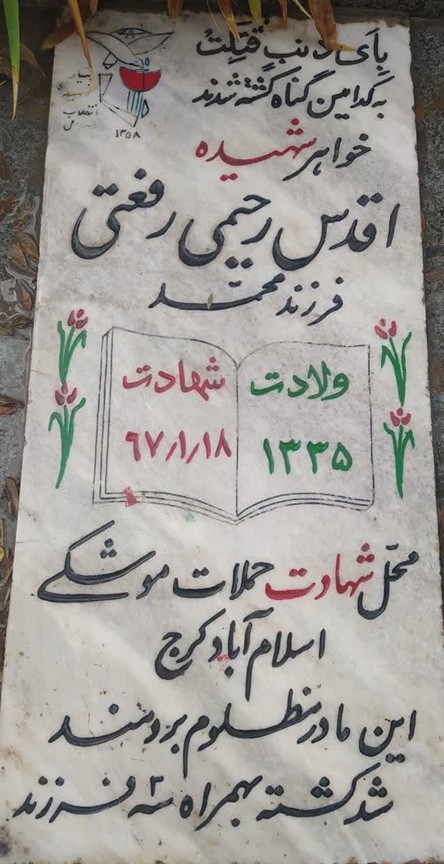 بِأَیِّ ذَنبٍ قُتِلَت
به کدامین گناه کشته شدند
بنیاد
شهید
انقلاب
اسلامی
۱۳۵۸
خواهر شهیده
اقدس رحیمی رفعتی
فرزند محمّد
ولادت شهادت
۱۳۳۵ ۶۷/۱/۱۸
محلّ شهادت حملات موشکی
اسلام آباد کرج
این مادر مظلوم برومند
شد کشته بهمراه سه ۳ فرزند